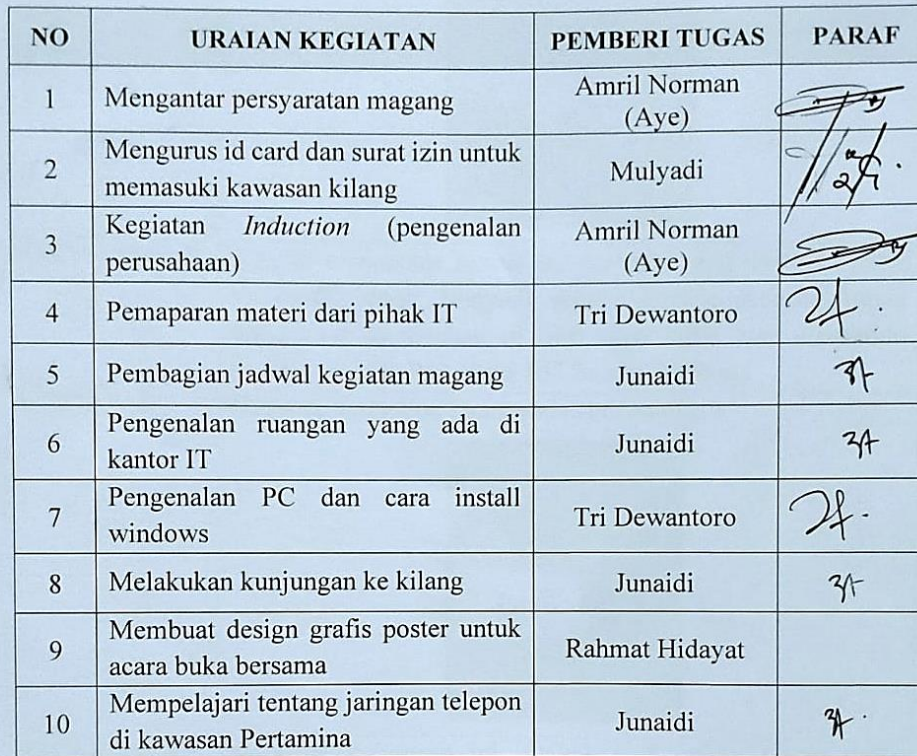 NO URAIAN KEGIATAN PEMBERI TUGAS PARAF
1 Mengantar persyaratan magang Amril Norman
(Aye)
2 Mengurus id card dan surat izin untuk
memasuki kawasan kilang Mulyadi
3 Kegiatan Induction (pengenalan
perusahaan) Amril Norman
(Aye)
4 Pemaparan materi dari pihak IT Tri Dewantoro
5 Pembagian jadwal kegiatan magang Junaidi
6 Pengenalan ruangan yang ada di
kantor IT Junaidi
7 Pengenalan PC dan cara install
windows Tri Dewantoro
8 Melakukan kunjungan ke kilang Junaidi
9 Membuat design grafis poster untuk
acara buka bersama Rahmat Hidayat
10 Mempelajari tentang jaringan telepon
di kawasan Pertamina Junaidi